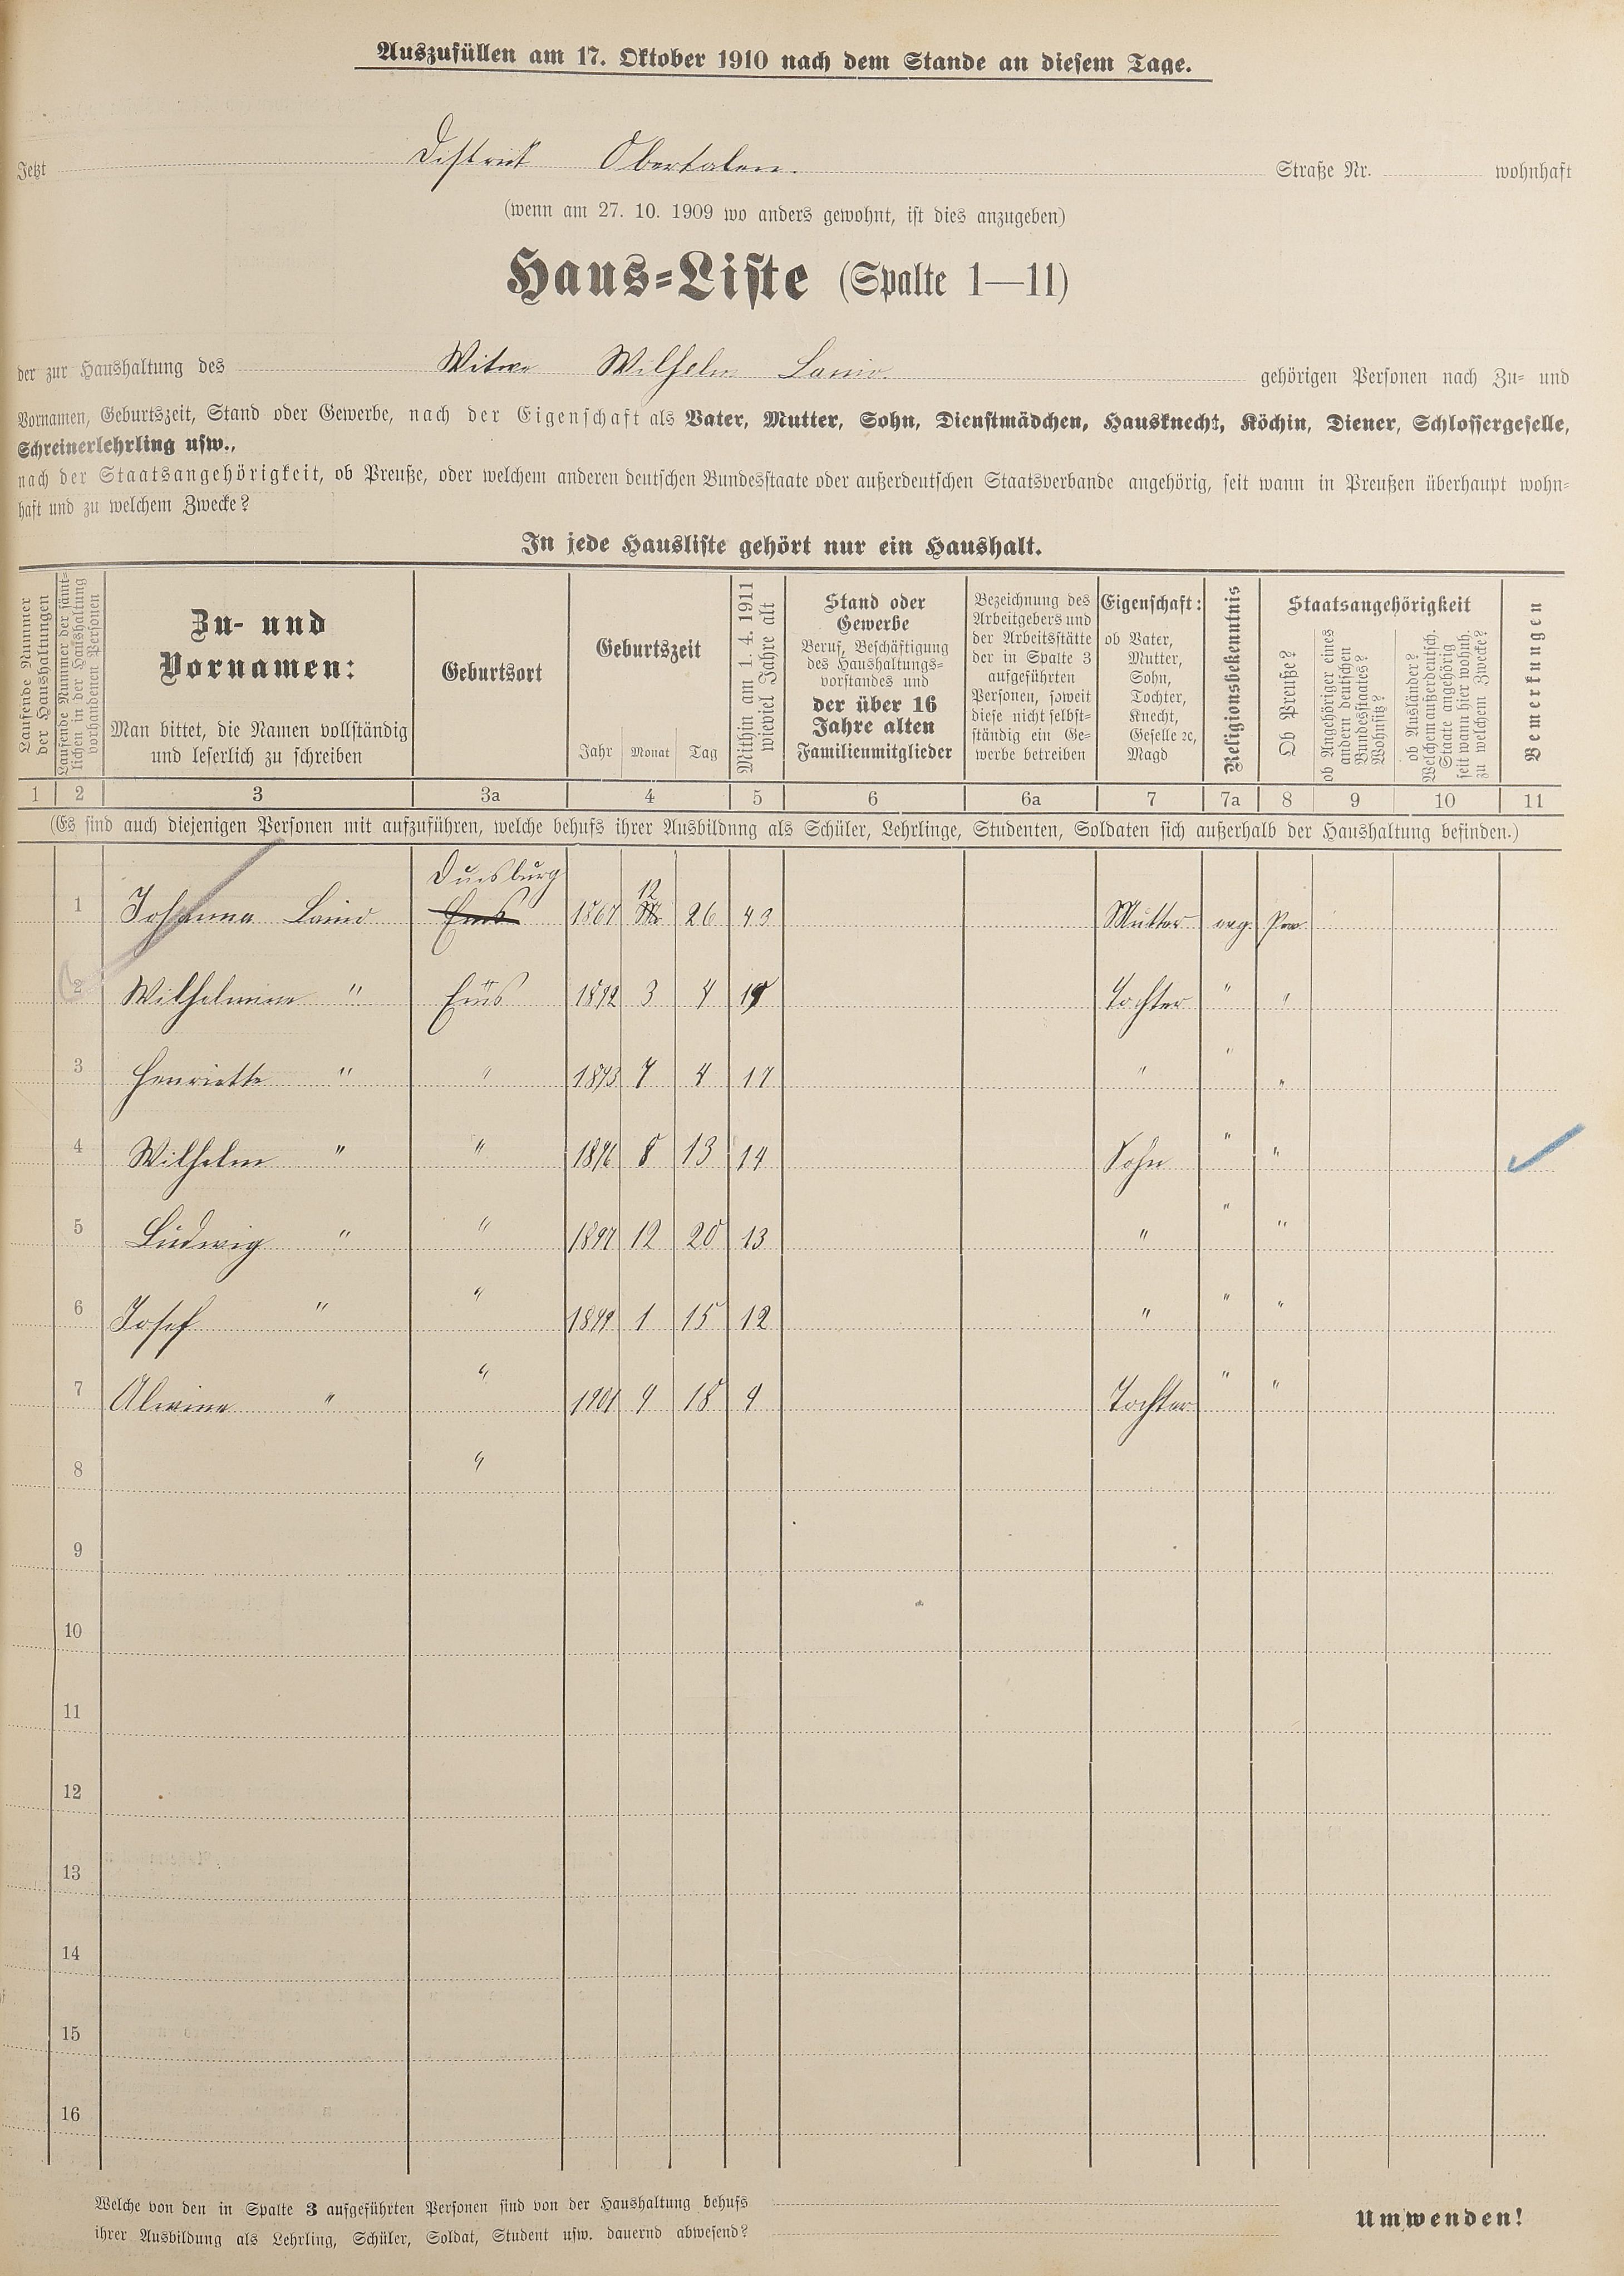 Auszufüllen am 17. Oktober 1910 nach dem Stande an diesem Tage.
Jetzt Distrikt Obertalen. Straße Nr. wohnhaft
(wenn am 27. 10. 1909 wo anders gewohnt, ist dies anzugeben)
Haus-Liste (Spalte 1—11)
der zur Haushaltung des Witwe Wilhelm gehörigen Personen nach Zu- und
Vornamen, Geburtszeit, Stand oder Gewerbe, nach der Eigenschaft als Vater, Mutter, Sohn, Dienstmädchen, Hausknecht, Köchin, Diener, Schlossergeselle,
Schreinerlehrling usw.,
nach der Staatsangehörigkeit, ob Preuße, oder welchem anderen deutschen Bundesstaate oder außerdeutschen Staatsverbande angehörig, seit wann in Preußen überhaupt wohn-
haft und zu welchem Zwecke?
In jede Hausliste gehört nur ein Haushalt.
Laufende Nummer
der Haushaltungen
Laufende Nummer der sämt-
lichen in der Haushaltung
vorhandenen Personen
Zu- und
Vornamen:
Man bittet, die Namen vollständig
und leserlich zu schreiben
Geburtsort
Geburtszeit
Jahr Monat Tag
Mithin am 1. 4. 1911
wieviel Jahre alt
Stand oder
Gewerbe
Beruf, Beschäftigung
des Haushaltungs-
vorstandes und
der über 16
Jahre alten
Familienmitglieder
Bezeichnung des
Arbeitgebers und
der Arbeitsstätte
der in Spalte 3
aufgeführten
Personen, soweit
diese nicht selbst-
ständig ein Ge-
werbe betreiben
Eigenschaft:
ob Vater,
Mutter,
Sohn,
Tochter,
Knecht,
Geselle ꝛc,
Magd
Religionsbekenntnis
Staatsangehörigkeit
Ob Preuße?
ob Angehöriger eines
andern deutschen
Bundesstaates?
Wohnsitz?
ob Ausländer?
Welchem außerdeutsch.
Staate angehörig
seit wann hier wohnh.
zu welchem Zwecke?
Bemerkungen
1 2 3 3a 4 5 6 6a 7 7a 8 9 10 11
(Es sind auch diejenigen Personen mit aufzuführen, welche behufs ihrer Ausbildung als Schüler, Lehrlinge, Studenten, Soldaten sich außerhalb der Haushaltung befinden.)
Duisburg
12
1 Johanna Ems 1867 26 43 Mutter evg.
2 Wilhelmine " Ems 1892 3 4 Tochter " "
3 Henriette " " 1893 7 4 17 " " "
4 Wilhelm " " 1896 8 13 14 Sohn " "
5 Ludwig " " 1897 12 20 13 " " "
6 Josef " " 1899 1 15 12 " " "
7 Alwine " " 1901 4 18 9 Tochter " "
8 "
9
10
11
12
13
14
15
16
Welche von den in Spalte 3 aufgeführten Personen sind von der Haushaltung behufs
ihrer Ausbildung als Lehrling, Schüler, Soldat, Student usw. dauernd abwesend?
Umwenden!